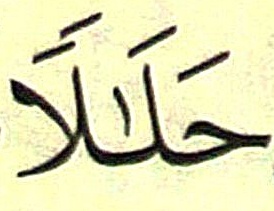 حَلَٰلًا